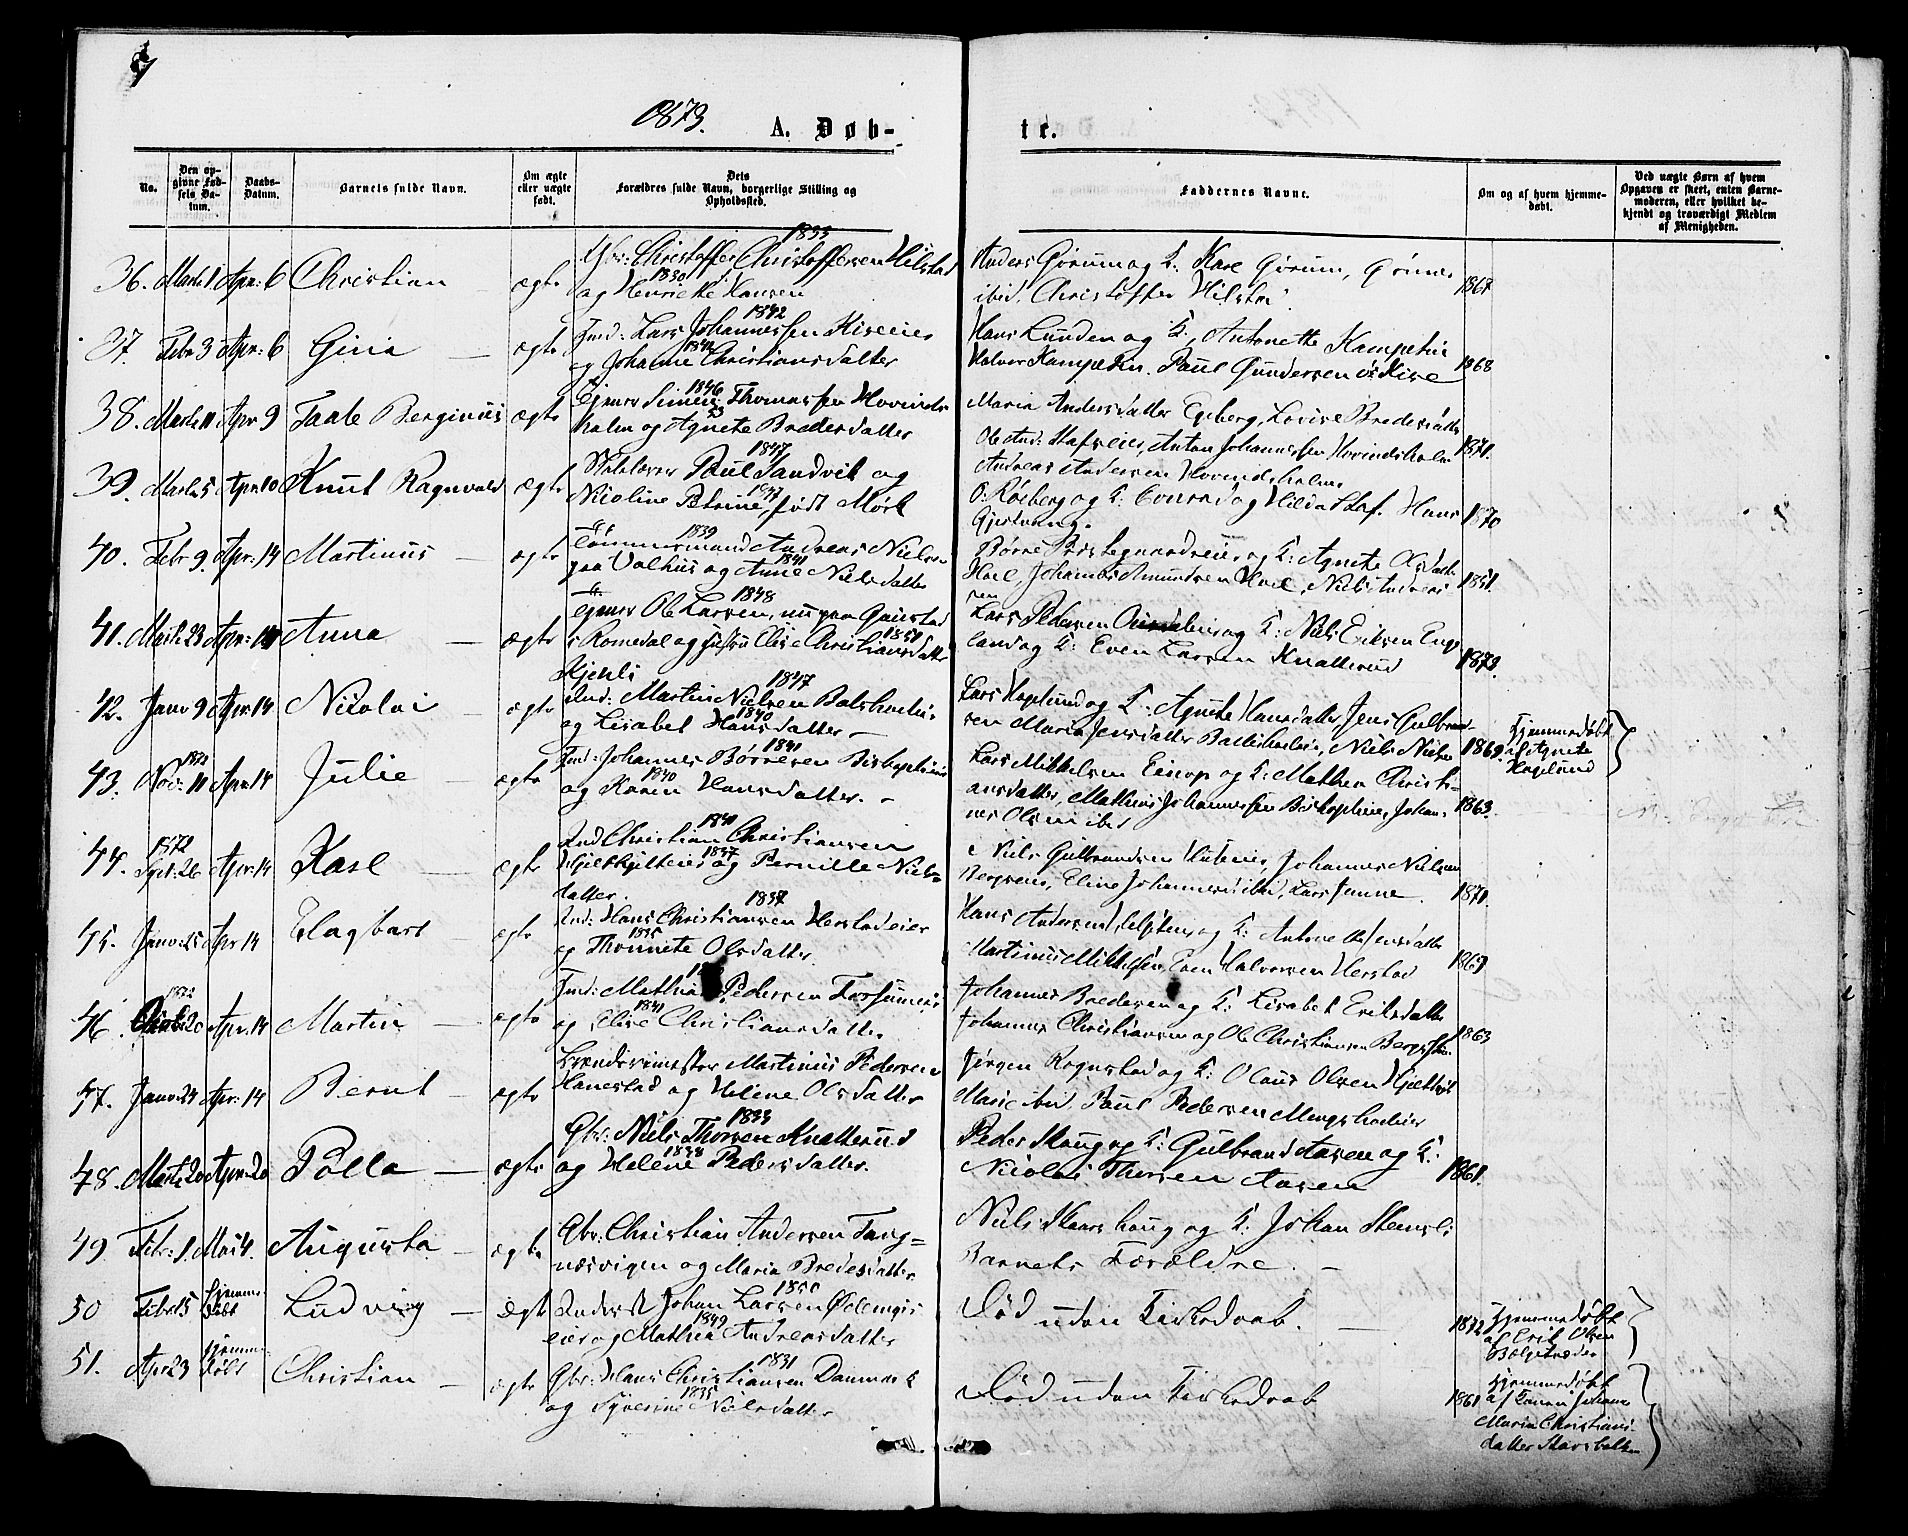 1873.
A. Døb-
te.
No.
Den op-
givne Fød-
sels Da-
tum.
Daabs-
Datum.
Barnets fulde Navn.
Om ægte
eller uægte
født.
Dets
Forældres fulde Navn, borgerlige Stilling og
Opholdssted.
Faddernes Navne.
Om og af hvem hjemme-
døbt.
Ved uægte Børn af hvem
Opgaven er skeet, enten Barne-
moderen, eller hvilket be-
kjendt og troværdigt Medlem
af Menigheden.
36. Marts 1 Apr: 6 Christian ægte
Gbr: Christoffer Christoffersen Hilstad 1833
og Henrikke Hansen 1830
Anders Gørum og K: Kari Gørum,
ibid, Christoffer Hilstad
37. Febr 3 Apr: 6 Gina — ægte
Ind: Lars Johannessen Kiseeie 1842
og Johanne Christiansdatter
Hans Lunden og K, Antonette Kampeseie
Paul Gundersen Kise 1868
38. Marts 11 Apr 9 Taale Berginus ægte
Tjener Simen Thomassen Hovinds- 1846
holm og Agnete Bredesdatter
Maria Andersdatter Egeberg, Lovise Bredesdatter
Ole And: Stafseie, Anton Johannessen Hovindsholm 1871.
Andreas Andersen Hovindsholm.
39. Marts 5 Apr. 10 Knut Ragnvald ægte
Paul Sandvik og 1847
Nicoline Petrine, født Mørk 1847
O: Røsberg og K: Conrad og Hilda Staf. Hans 1870
Gjestvang.
40. Febr 9. Apr: 14 Martinus — ægte
Tømmermand Andreas Nielsen 1839
paa Valhus og Anne Nielsdatter 1841
Agnete Olsdatter
Hoel, Johannes Amundsen Hoel, Niels Andrea- 1851.
sen
41. Marts 23 Apr: 14 Anna — ægte
Tjener Ole Larsen, nu paa Gaustad 1848
i Romedal og Hustru Elise Christiansdatter 1851
Kjehli
Lars Pedersen og K: Niels Eriksen Eng-
land og K: Even Larsen Knatterud 1872.
42. Janv 9 Apr. 14 Nicolai — ægte
Ind: Martin Nielsen Balshoeleie 1847
og Lisabet Hansdatter — 1840
Lars Hoglund og K. Agnete Hansdatter, Jens Gulbrand-
sen Maria Jensdatter Ballishoeleie, Niels Nielsen 1869.
Hjemmedøbt
af Agnete
Hoglund
43. 1872 Nov: 11 Apr. 14 Julie ægte
Ind: Johannes Børresen Biskopleie 1841
og Karen Hansdatter. — 1840
Lars Mikkelsen Einop og K: Mathea Christi-
ansdatter, Mathias Johannessen Biskopleie, Johan- 1863.
nes Olsen ibid
44. 1872 Sept: 26 Apr: 14 Karl — ægte
Ind Christian Christiansen 1841
Hjelthjelteie og Pernille Niels- 1837
datter.
Niels Gulbrandsen, Johannes Nielsen
Eline Johannesd: ibid, Lars Jemne. 1871.
45. Janv: 25 Apr 14 Elagbart — ægte
Ind: Hans Christiansen Herstadeie 1837
og Thonnete Olsdatter. 1835
Hans Andersen og K: Antonette Jensdatter
Martinus Mikkelsen, Even Halvorsen Herstad 1869
46. 1872 20 Apr. 14 Martin — ægte
Ind: Mathias Pedersen Forsuneie
og Elise Christiansdatter 1841
Johannes Bredesen og K: Lisabet Eriksdatter
Johannes Christiansen og Ole Christiansen 1863
47. Janv: 24 Apr: 14 Bernt — ægte
Brænderimester Martinus Pedersen
Hanestad og Helene Olsdatter
Jørgen Rognstad og K: Olaus Olsen
Marie ibid, Paul Pedersen Mengshoeleie
48. Marts 20 Apr. 20 Polla — ægte
Gbr: Niels Thorsen Knatterud 1833
og Helene Pedersdatter.
Peder Haug og K: Gulbrand Aasen og K:
Nicolai Thorsen Aasen 1861.
49 Febr: 1. Mai 4. Augusta — ægte
Gbr: Christian Andersen Tang-
næsvigen og Maria Bredesdatter
Niels Skaarshaug og K. Johan Stensli
Barnets Forældre. —
50 Febr. 15 Hjemme-
døbt Ludvig — ægte
Inderst Johan Larsen Ødemgs 1850
eie og Mathia Andreasdatter 1849
Død uden Kirkedaab. — 1872
Hjemmedøbt
af Erik Olsen
Bælgetræder
51. Apr 23 Hjemme-
døbt Christian — ægte
Gbr: Hans Christiansen Danmark 1831
og Syverine Nielsdatter 1835
Død uden Kirkedaab 1861
Hjemmedøbt
af Konen Johanne
Maria Christians-
datter